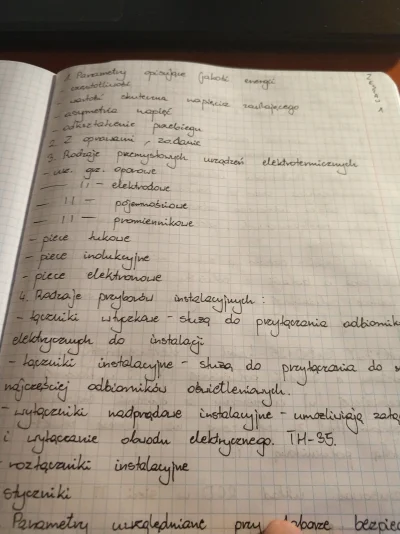 1. Parametry opisujące jakość energii
- częstotliwość
- wartość skuteczna napięcia zasilającego
- asymetria napięć
- odkształcenie przebiegu
2. Z oprawami, zadanie
3. Rodzaje przemysłowych urządzeń elektrotermicznych
- urz. grz. oporowe
— 11 — elektrodowe
— 11 — pojemnościowe
— 11 — promiennikowe
- piece łukowe
- piece indukcyjne
- piece elektronowe
4. Rodzaje przyborów instalacyjnych:
- łączniki wtyczkowe - służą do przyłączania odbiornik
elektrycznych do instalacji
- łączniki instalacyjne - służą do przyłączania do
najczęściej odbiorników oświetleniowych.
- wyłączniki nadprądowe instalacyjne - umożliwiają załą
i wyłączanie obwodu elektrycznego. TH-35.
- rozłączniki instalacyjne
styczniki
Parametry uwzględniane przy doborze bezpiec